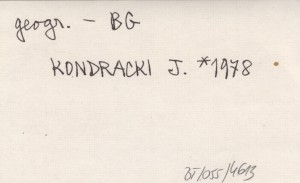 geogr. – BG
KONDRACKI J. *1978
BT/055/4613